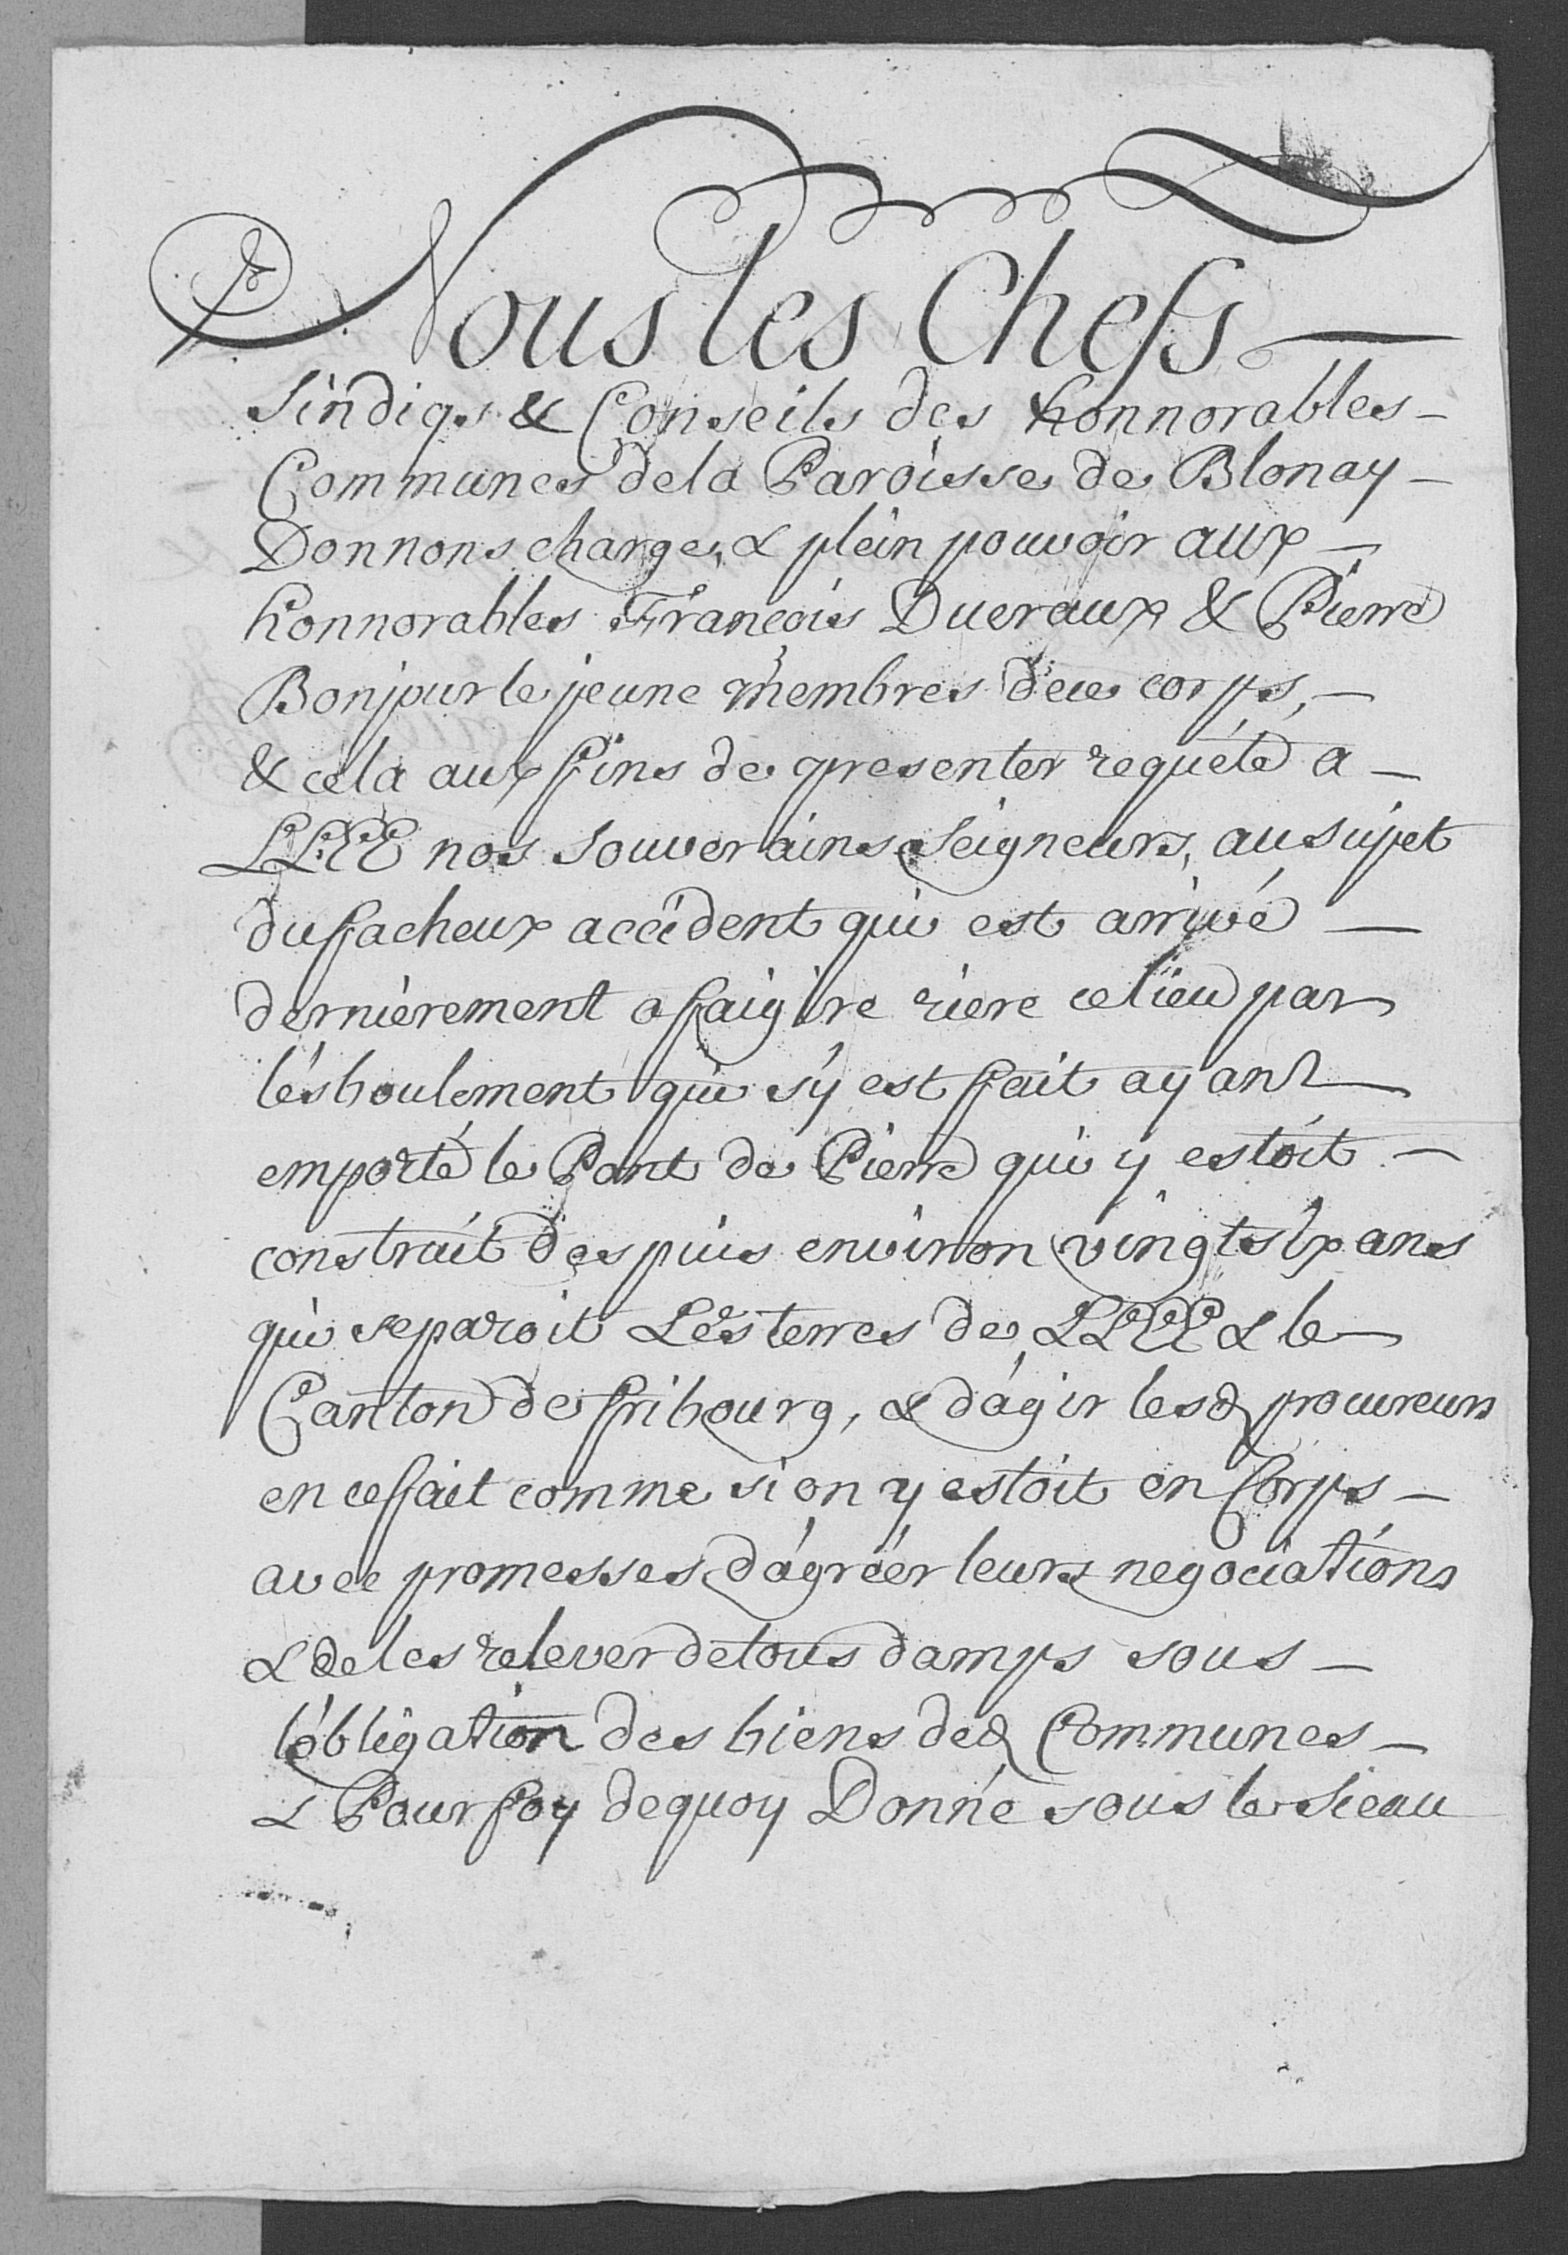 Nous les Chefs
Sindiqs & Conseils des honnorables
Communes de la Paroisse de Blonay
Donnons charge, & plein pouvoir aux
honnorables François Dueraux & Pierre
Bonjour le jeune membres de ce corps,
& cela aux fins de presenter requéte a
LLEE nos souverains Seigneurs, au sujet
du facheux accident qui est arrivé
dernièrement a faigire riere ce lieu par
l'ésboulement qui s'y est fait ayant
emporté le Pont de Pierre qui y estoit
construit despuis environ vingt six ans
qui separoit Les terres de LLEE & le
Canton de fribourg, & d'agir lesd procureurs
en ce fait comme si on y estoit en Corps
avec promesses d'agréer leurs negociations
& de les relever de tous damps sous
l'obligation des biens ded Communes
& Pour foy de quoy Donné sous le Sieau